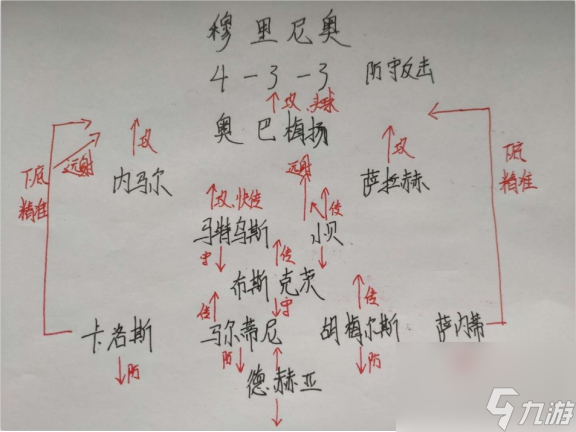 穆里尼奥
4-3-3 防守反击
攻 头球
奥巴梅扬
攻 远射 攻
下底 精准 远射 内马尔 萨拉赫 下底 精准
攻.快传 传
马特乌斯 小贝
守 传
布斯克茨
传 守 传
卡洛斯 马尔蒂尼 胡梅尔斯 萨内蒂
防 防 防
德赫亚
九游